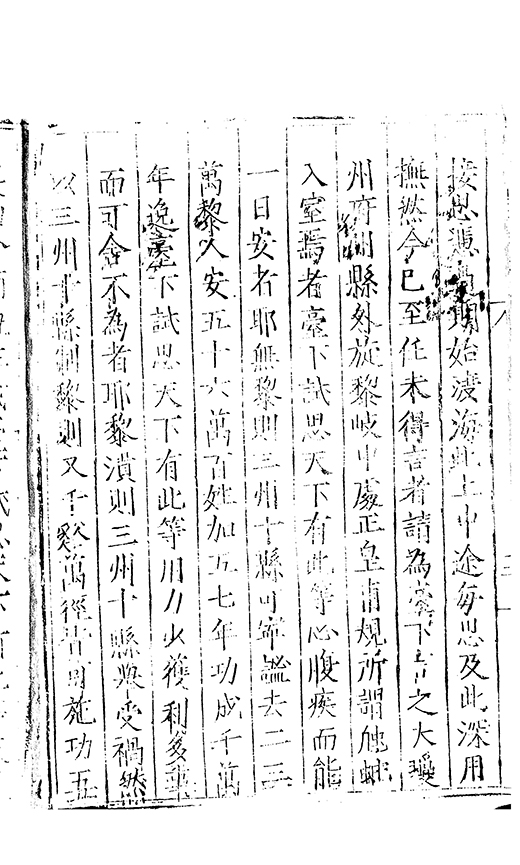 接思憑　期始渡海此上中途每思及此深用
撫然今已至任未得言者請為臺下言之大瓊
州府州縣外旋黎岐中處正皇甫規所謂虺蛇
入室焉者臺下試思天下有此等心腹疾而能
一日安者耶無黎則三州十縣可寧謐去二三
萬黎人安五十六萬百姓加五七年功成千萬
年逸臺下試思天下有此等用力少獲利多事
而可金不為者耶黎潰則三州十縣與受禍然
以三州十縣制黎則又千谿萬徑皆可施功五